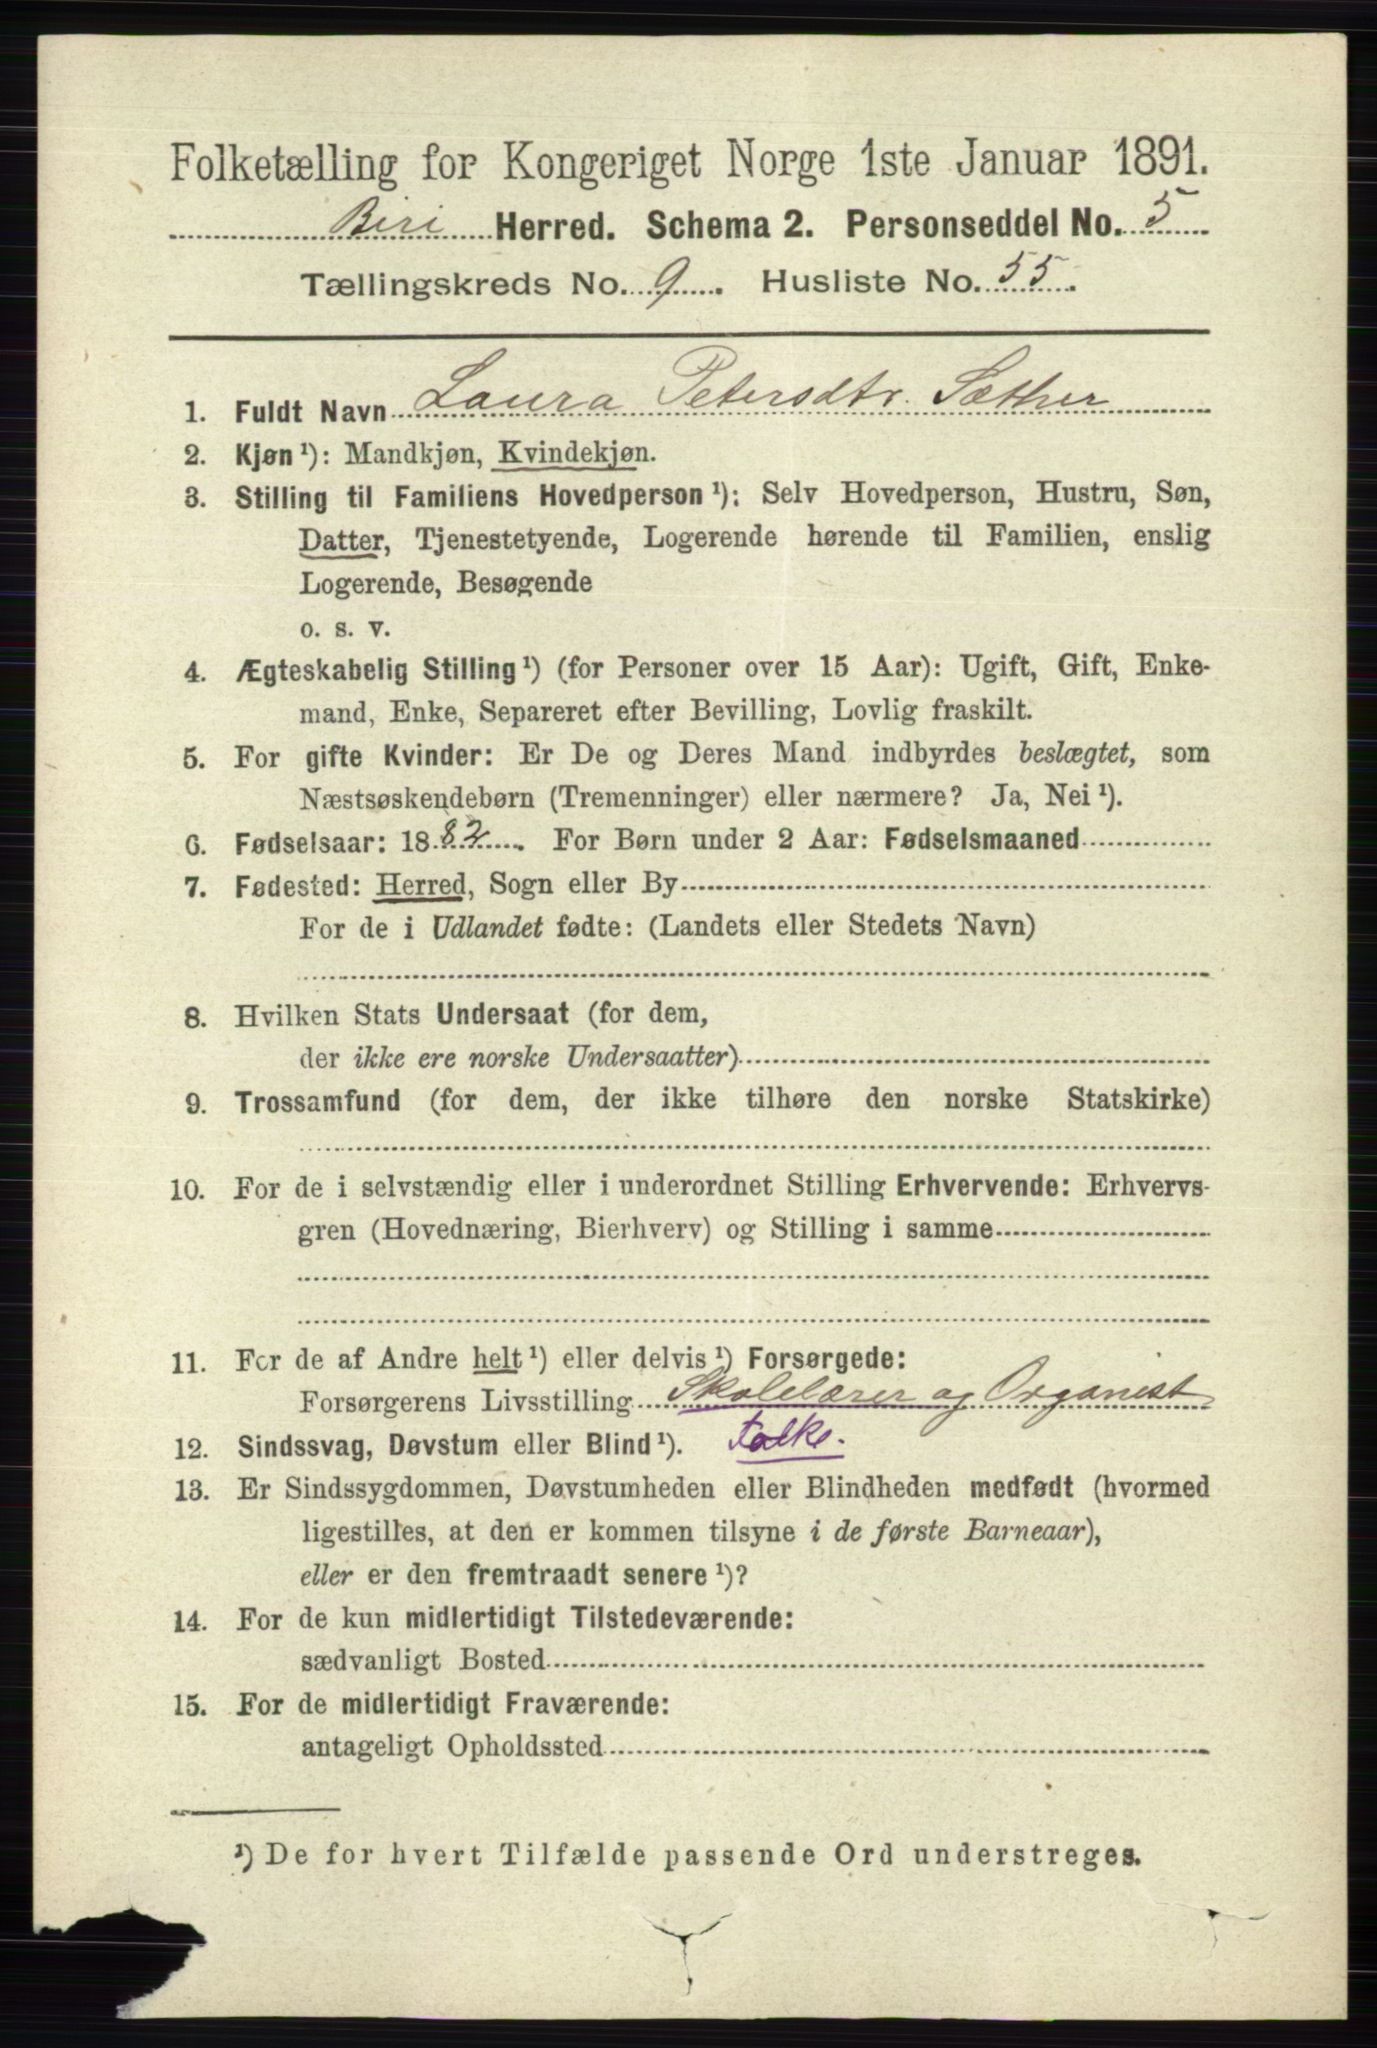 Folketælling for Kongeriget Norge 1ste Januar 1891.
Biri Herred. Schema 2. Personseddel No. 5
Tællingskreds No. 9. Husliste No. 55.
1. Fuldt Navn Laura Petersdtr. Sæther
2. Kjøn ¹): Mandkjøn, Kvindekjøn.
3. Stilling til Familiens Hovedperson ¹): Selv Hovedperson, Hustru, Søn,
Datter, Tjenestetyende, Logerende hørende til Familien, enslig
Logerende, Besøgende
o. s. v.
4. Ægteskabelig Stilling ¹) (for Personer over 15 Aar): Ugift, Gift, Enke-
mand, Enke, Separeret efter Bevilling, Lovlig fraskilt.
5. For gifte Kvinder: Er De og Deres Mand indbyrdes beslægtet, som
Næstsøskendebørn (Tremenninger) eller nærmere? Ja, Nei ¹).
6. Fødselsaar: 1882. For Børn under 2 Aar: Fødselsmaaned
7. Fødested: Herred, Sogn eller By
For de i Udlandet fødte: (Landets eller Stedets Navn)
8. Hvilken Stats Undersaat (for dem,
der ikke ere norske Undersaatter)
9. Trossamfund (for dem, der ikke tilhøre den norske Statskirke)
10. For de i selvstændig eller i underordnet Stilling Erhvervende: Erhvervs-
gren (Hovednæring, Bierhverv) og Stilling i samme
11. For de af Andre helt ¹) eller delvis ¹) Forsørgede:
Forsørgerens Livsstilling Skolelærer og Organist
12. Sindssvag, Døvstum eller Blind ¹).
13. Er Sindssygdommen, Døvstumheden eller Blindheden medfødt (hvormed
ligestilles, at den er kommen tilsyne i de første Barneaar),
eller er den fremtraadt senere ¹)?
14. For de kun midlertidigt Tilstedeværende:
sædvanligt Bosted
15. For de midlertidigt Fraværende:
antageligt Opholdssted
¹) De for hvert Tilfælde passende Ord understreges.